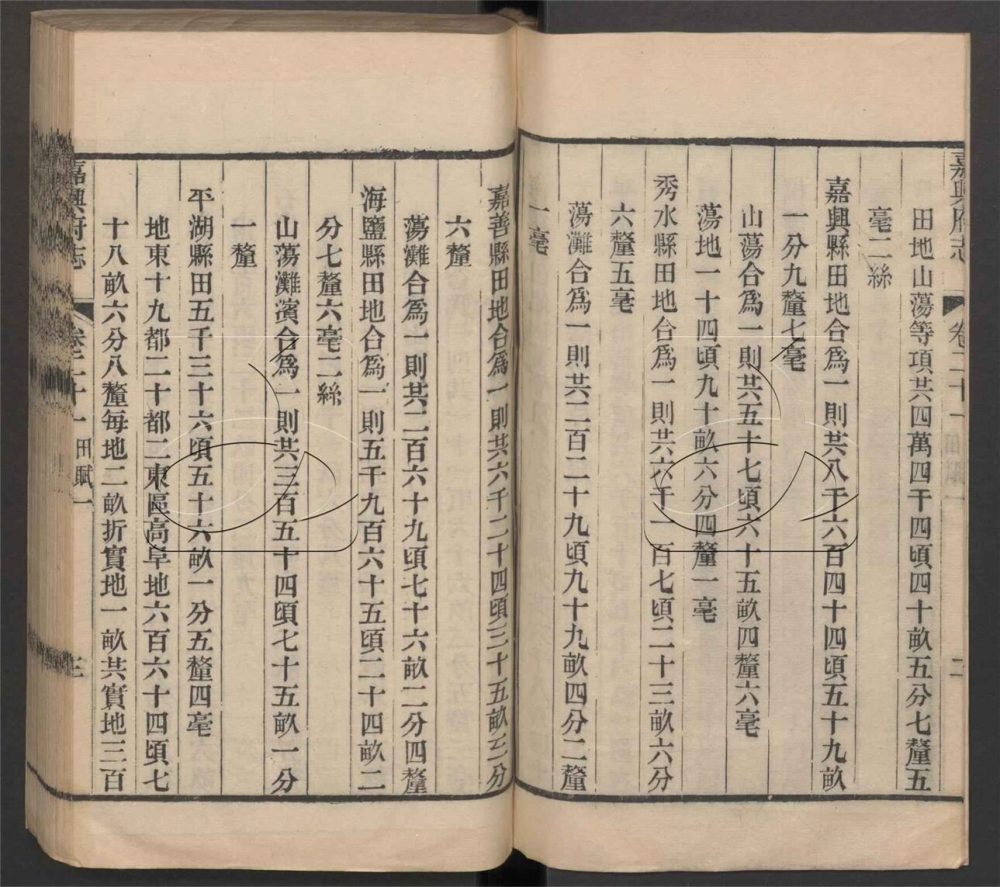 嘉興府志
卷二十一
田賦一
二
田地山蕩等項共四萬四千四頃四十畝五分七釐五
毫二絲
嘉興縣田地合爲一則共八千六百四十四頃五十九畝
一分九釐七毫
山蕩合爲一則共五十七頃六十五畝四釐六毫
蕩地一十四頃九十畝六分四釐一毫
秀水縣田地合爲一則共六千一百七頃二十三畝六分
六釐五毫
蕩灘合爲一則共二百二十九頃九十九畝四分二釐
一毫
嘉善縣田地合爲一則共六千二十四頃三十五畝三分
六釐
蕩灘合爲一則共二百六十九頃七十六畝二分四釐
海鹽縣田地合爲一則五千九百六十五頃二十四畝二
分七釐六毫二絲
山蕩灘濱合爲一則共三百五十四頃七十五畝一分
一釐
平湖縣田五千三十六頃五十六畝一分五釐四毫
地東十九都二十都二東區高阜地六百六十四頃七
十八畝六分八釐每地二畝折實地一畝共實地三百
嘉興府志
卷二十一
田賦一
三